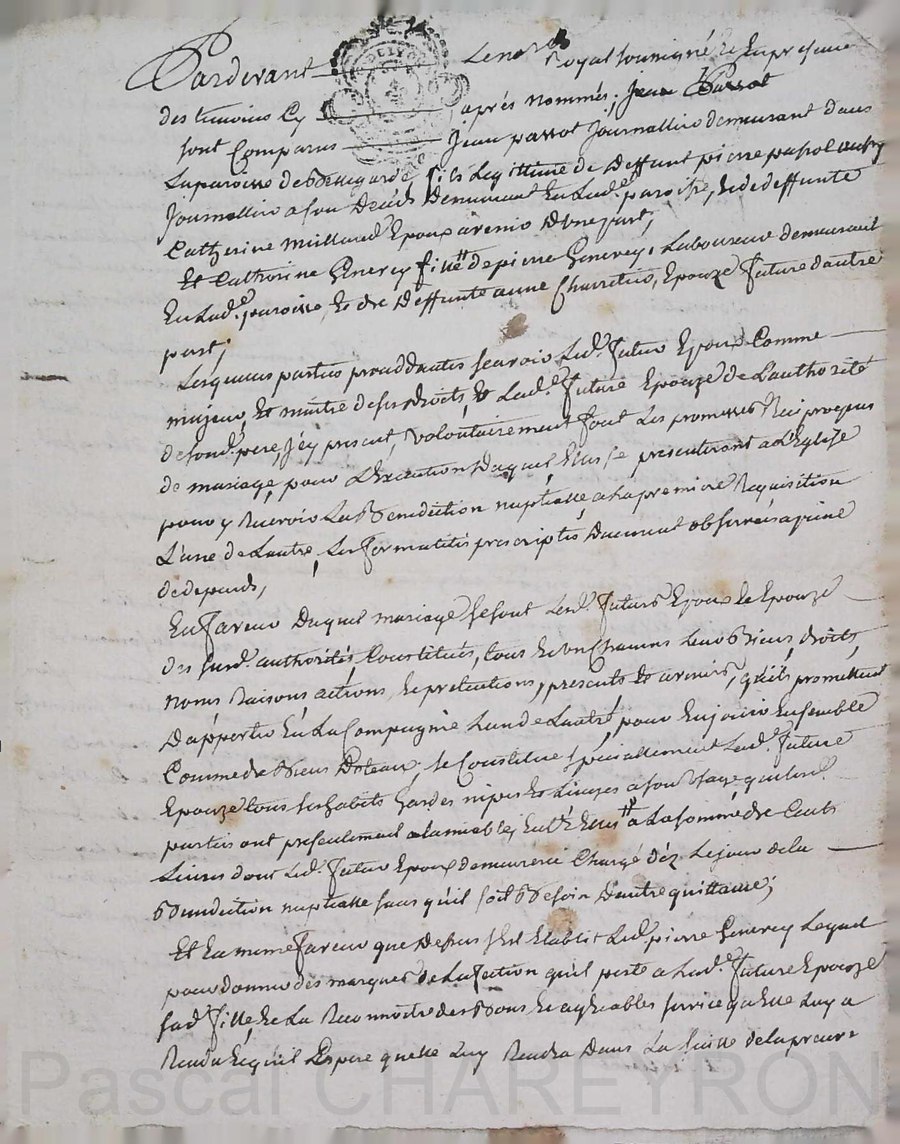 Pardevant Lenore Royal soussigné et En presence
des temoins Cy après nommés, Jean Parrot
sont Comparus Jean parrot Journallier demeurant dans
La paroisse de Bellegarde, fils Legittime de Deffunt pierre parrot
Journallier a son Decéds Demeurant En Lad.e paroisse, & de deffunte
Catherine millaud Epoux avenir Dune part;
Et Catherine Genevey fille de pierre Genevey, Laboureur demeurant
En Lad.e paroisse, & de Deffunte anne Charretier, Epouze future dautre
part;
Lesquelles parties procedantes scavoir Led. futur Epoux Comme
majeur, Et maitre de ses droits, & Lad.e future Epouze de Lauthorité
de sond. pere, Jcy present, volontairement font Les promesses Reciproques
de mariage, pour L'Execution Duquel Elles se presenteront a L'Eglise
pour y Recevoir La Benediction nuptialle a La premiere Requisition
L'une de Lautre, Les formalités prescriptes Duement observées a peine
de depends,
En faveur Duquel mariage se sont Lesd. futurs Epoux & Epouze
Des susd. authorités, Constitués, tous & un Chacuns Leurs Biens, droits,
noms Raisons, actions, & pretentions, presents & avenirs, qu'ils promettent
D'apporter En La Compagnie Lun de Lautre, pour En jouir Ensemble
Comme de Biens Dotaux, se Constitue specialement Lad.e future
Epouze tous ses habits hardes nipes & Linges a son usage que Lesd.
parties ont presentement a Lamiable, Entre Elles a La somme de Cents
Livres dont Led. futur Epoux demeurera Chargé Dèz Le jour de la
Benediction nuptialle sans qu'il soit Besoin Dautre quittance;
Et En meme faveur que Dessus s'Est Etablit Led. pierre Genevey Lequel
pour donner des marques de Lafection quil porte a Lad.e future Epouze
sad. fille, & La Reconnoitre des Bons & agreables services qu'elle Luy a
Rendu & quil Espere quelle Luy Rendra Dans La suitte de la preuve
Pascal CHAREYRON